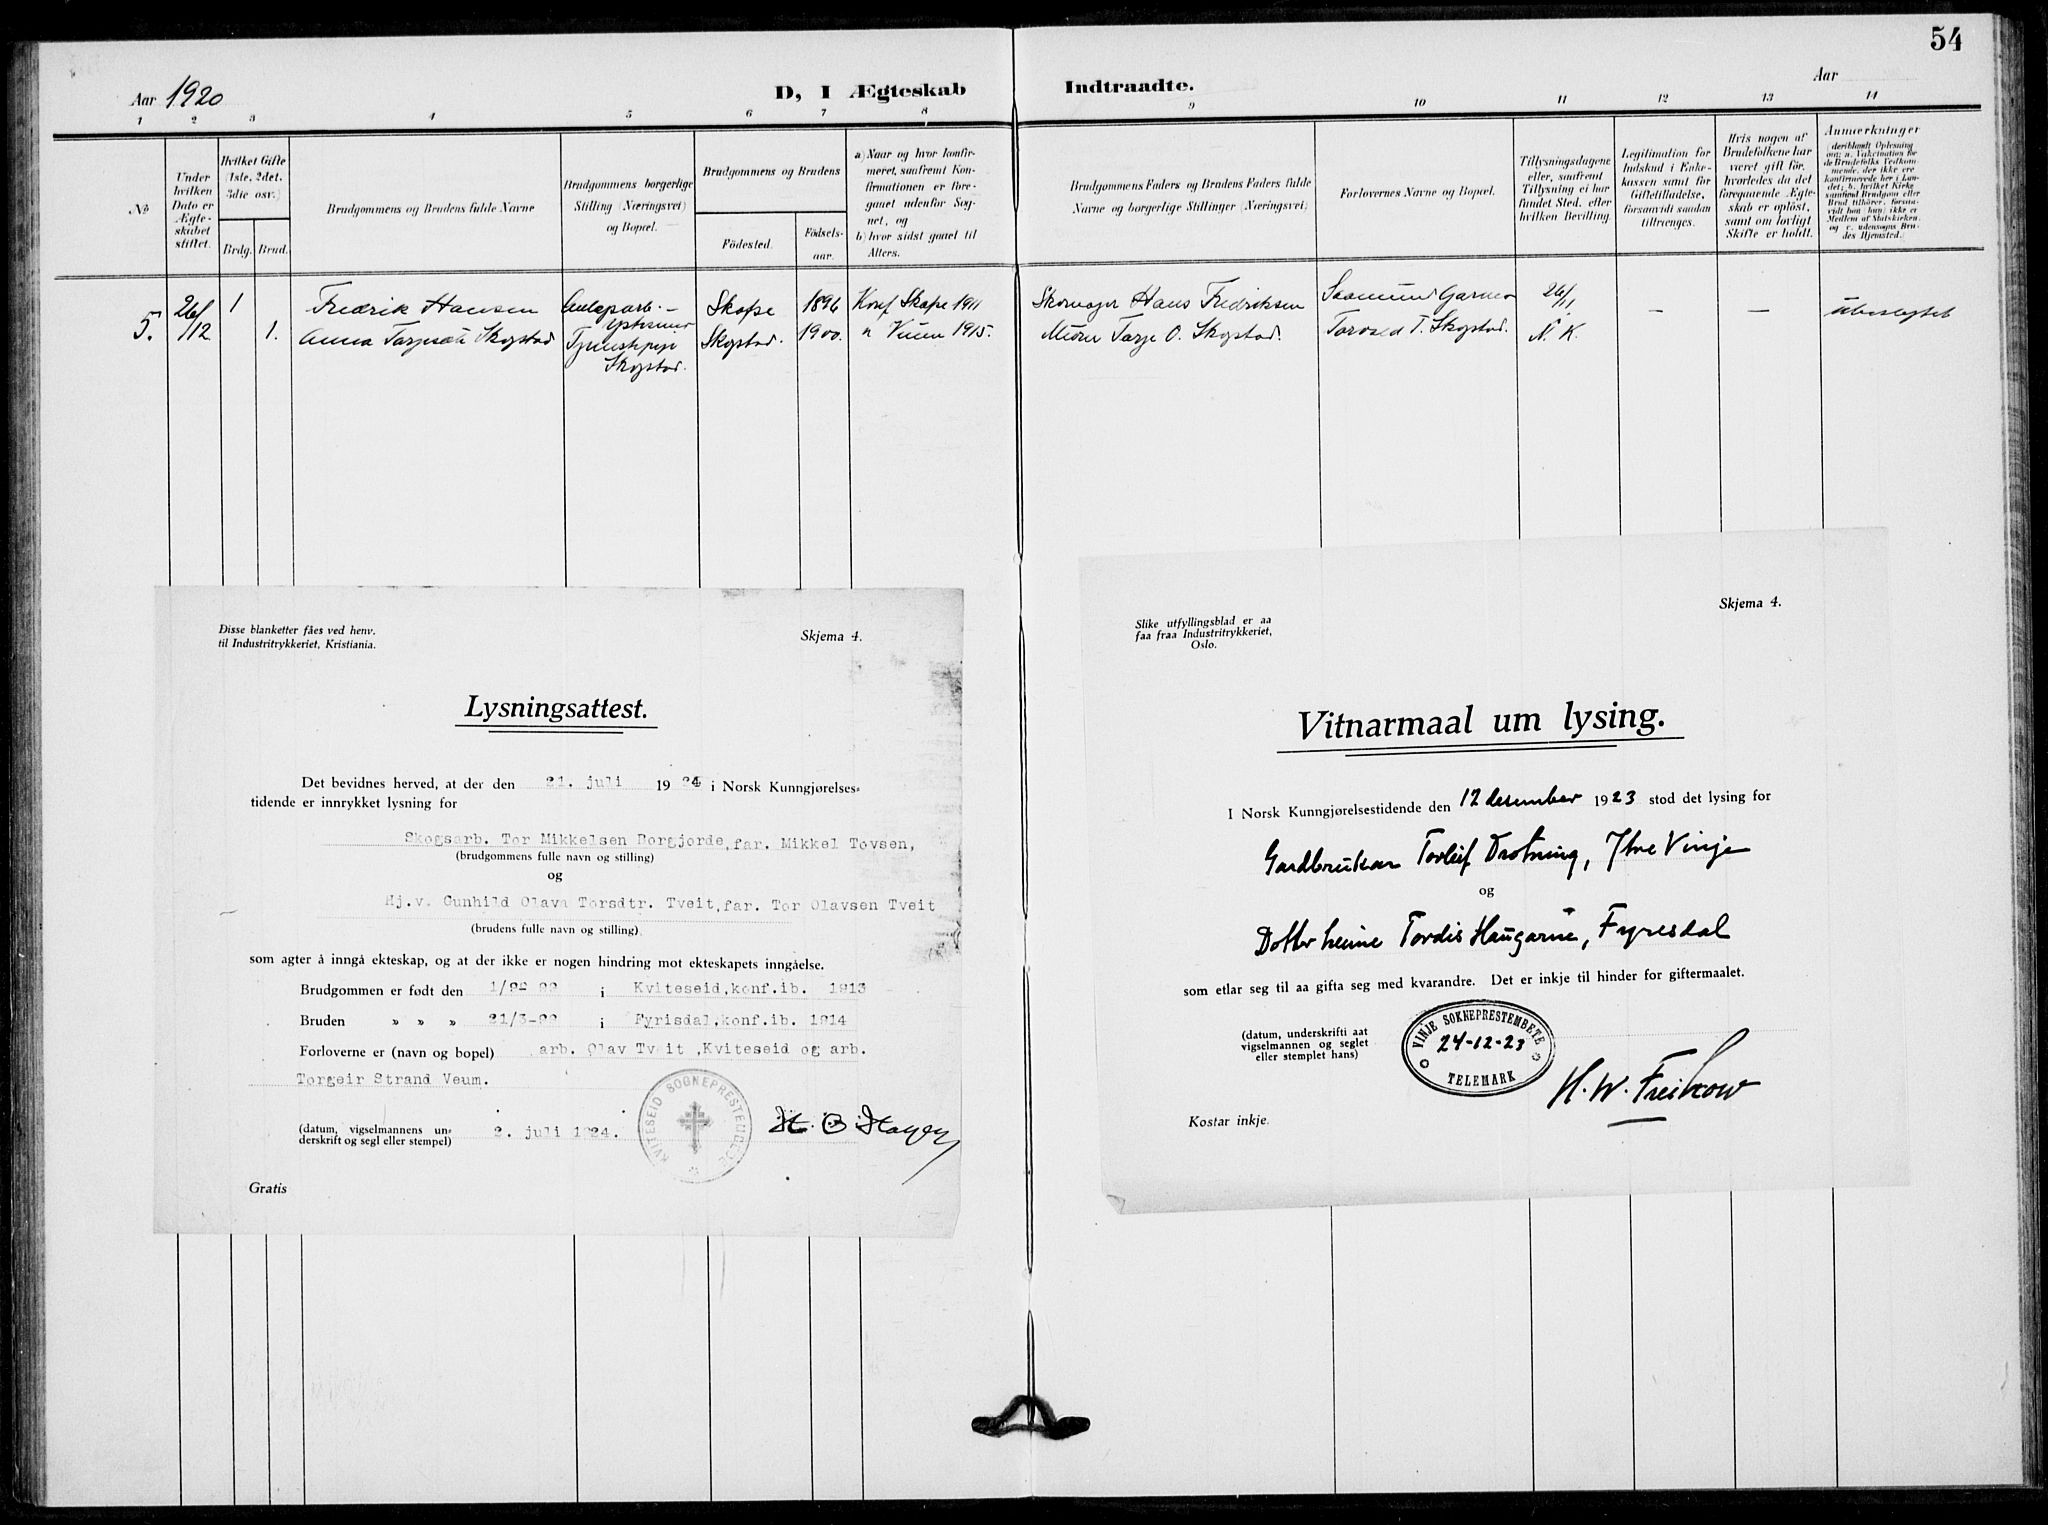 54
Aar 1920
D, I Ægteskab Indtraadte.
Aar
1 2 3 4 5 6 7 8 9 10 11 12 13 14
№
Under
hvilken
Dato er
Ægte-
skabet
stiftet.
Hvilket Gifte
(1ste, 2det,
3die osv.)
Brdg. Brud.
Brudgommens og Brudens fulde Navne
Brudgommens borgerlige
Stilling (Næringsvei)
og Bopæl.
Brudgommens og Brudens
Födested.
Födsels-
aar.
a) Naar og hvor konfir-
meret, saafremt Kon-
firmationen er fore-
gaaet udenfor Sog-
net, og
b) hvor sidst gaaet til
Alters.
Brudgommens Faders og Brudens Faders fulde
Navne og borgerlige Stillinger (Næringsvei)
Forlovernes Navne og Bopæl.
Tillysningsdagene
eller, saafremt
Tillysning ei har
fundet Sted, efter
hvilken Bevilling.
Legitimation for
Indskud i Enke-
kassen samt for
Giftetilladelse,
forsaavidt saadan
tiltrænges.
Hvis nogen af
Brudefolkene har
været gift før,
hvorledes da det
foregaaende Ægte-
skab er oplöst,
samt om lovligt
Skifte er holdt.
Anmerkninger
(deriblandt Oplysning
om: a. Vakcination for
de Brudefolks Vedkom-
mende, der ikke ere
konfirmerede her i Lan-
det; b. hvilket Kirke-
samfund Brudgom eller
Brud tilhörer, forsaa-
vidt han (hun) ikke er
Medlem af Statskirken,
og c. udensogns Bru-
des Hjemsted.)
5. 26/12 1 Fredrik Hansen Skafse 1896 Konf Skafse 1911 Skomager Hans Fredriksen 26/11 — — ubeslegtet
1. Anna Tarjesdt Skogstad Skogstad. Skogstad. 1900. " Veum 1915. Murer Tarje O. Skogstad. T. Skogstad. N. K.
Disse blanketter fåes ved henv.
til Industritrykkeriet, Kristiania.
Skjema 4.
Lysningsattest.
Det bevidnes herved, at der den 21. juli 1924 i Norsk Kunngjørelses-
tidende er innrykket lysning for
Skogsarb. Tor Mikkelsen Borgjorde, far. Mikkel Tovsen,
(brudgommens fulle navn og stilling)
og
Hj.v. Gunhild Olava Torsdtr. Tveit, far. Tor Olavsen Tveit
(brudens fulle navn og stilling)
som agter å inngå ekteskap, og at der ikke er nogen hindring mot ekteskapets inngåelse.
Brudgommen er født den i Kviteseid, konf. ib. 1913
Bruden » » » i Fyrisdal, konf. ib. 1914
Forloverne er (navn og bopel) arb. Olav Tveit, Kviteseid og arb.
Torgeir Strand Veum.
(datum, vigselmannens un-
derskrift og segl eller stempel)
2. juli 1924.
KVITESEID SOGNEPRESTEMBEDE
Gratis
Slike utfyllingsblad er aa
faa fraa Industritrykkeriet,
Oslo.
Skjema 4.
Vitnarmaal um lysing.
I Norsk Kunngjørelsestidende den 12 desember 1923 stod det lysing for
Gardbrukar Torleif Drotning, Øvre Vinje
og
Dotter heime Tordis Haugarne, Fyresdal
som etlar seg til aa gifta seg med kvarandre. Det er inkje til hinder for giftermaalet.
(datum, underskrifti aat
vigselmannen og seglet
eller stemplet hans)
VINJE SOKNEPRESTEMBETE
24-12-23
TELEMARK
H. W. Freihow
Kostar inkje.